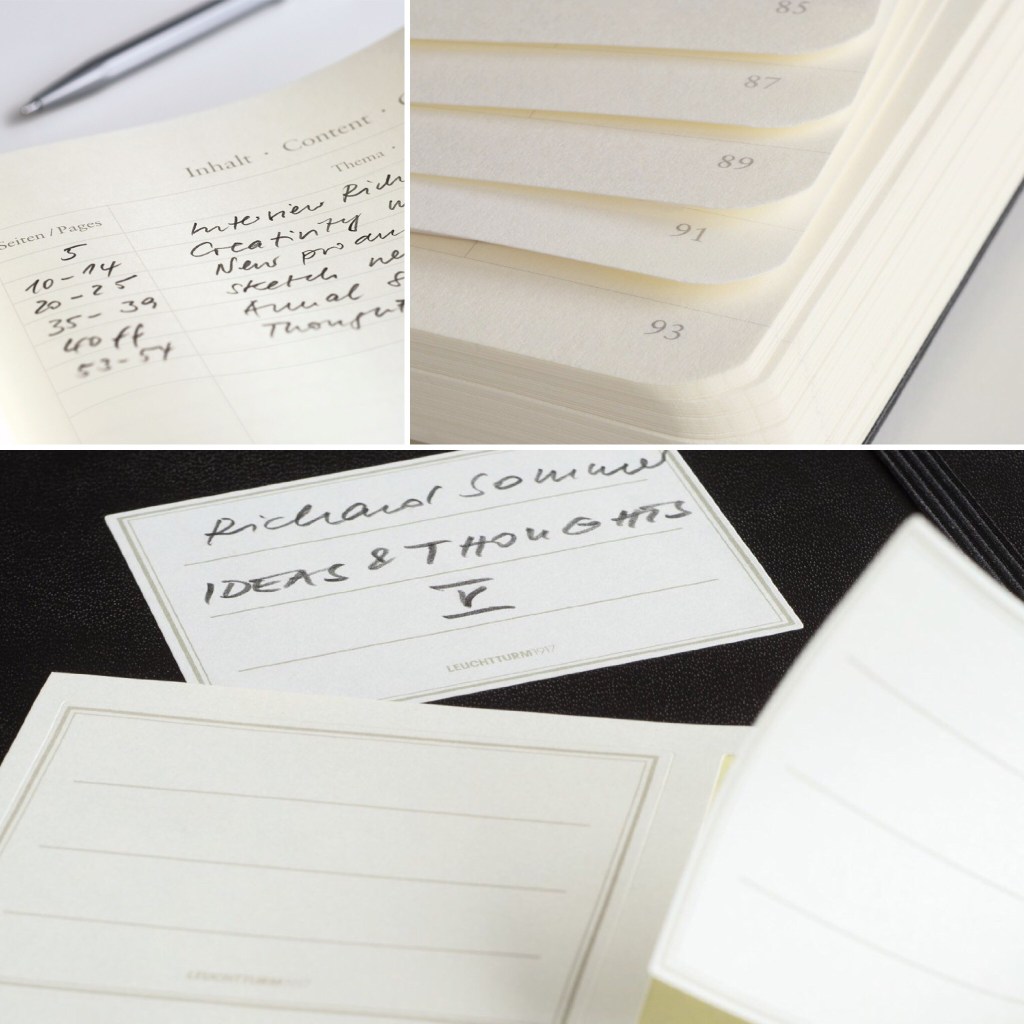 Inhalt · Content ·
Thema ·
Seiten / Pages
5 Interview Rich
10-14 Creativity
20-25 New produ
35-39 Sketch ne
40 ff Annual
53-54 Thought
85
87
89
91
93
Richard Sommer
IDEAS & THOUGHTS
V
LEUCHTTURM1917
LEUCHTTURM1917